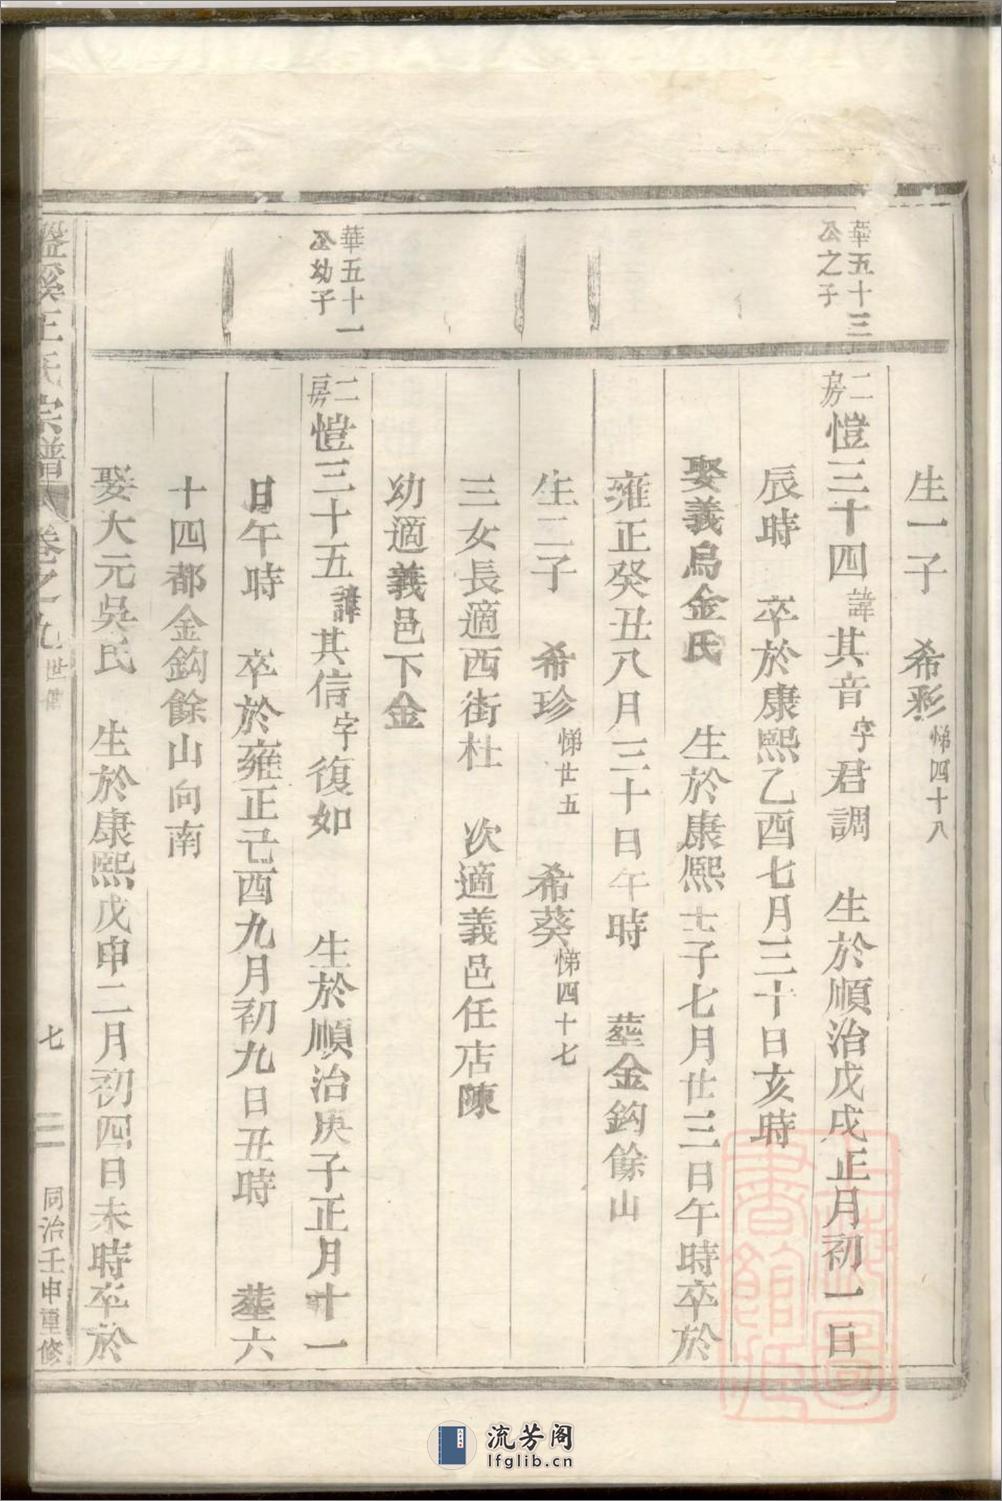 生一子 希彩悌四十八
華五十三
公之子
二房愷三十四諱其音字君調 生於順治戊戌正月初一日
辰時 卒於康熙乙酉七月三十日亥時
娶義烏金氏 生於康熙壬子七月廿三日午時卒於
雍正癸丑八月三十日午時 塟金鈎餘山
生二子 希珍悌廿五 希葵悌四十七
三女長適西街杜 次適義邑任店陳
幼適義邑下金
華五十一
公幼子
二房愷三十五諱其信字復如 生於順治庚子正月十一
日午時 卒於雍正己酉九月初九日丑時 塟六
十四都金鈎餘山向南
娶大元吳氏 生於康熙戊申二月初四日未時卒於
溪王氏宗譜 卷之九 世
七
同治壬申重修
上海圖
書館藏
流芳阁
lfglib.cn